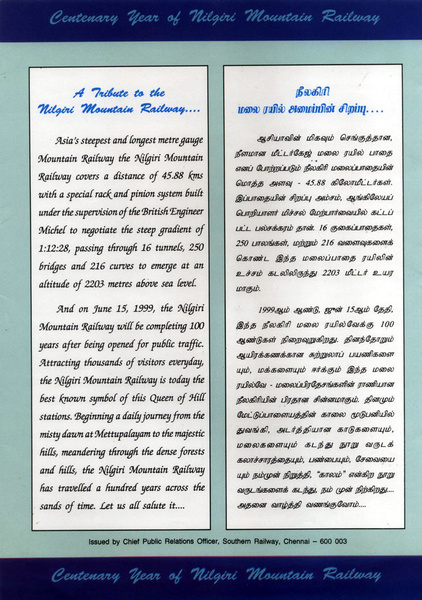 Centenary Year of Nilgiri Mountain Railway
A Tribute to the
Nilgiri Mountain Railway....
Asia's steepest and longest metre gauge
Mountain Railway the Nilgiri Mountain
Railway covers a distance of 45.88 kms
with a special rack and pinion system built
under the supervision of the British Engineer
Michel to negotiate the steep gradient of
1:12:28, passing through 16 tunnels, 250
bridges and 216 curves to emerge at an
altitude of 2203 metres above sea level.
And on June 15, 1999, the Nilgiri
Mountain Railway will be completing 100
years after being opened for public traffic.
Attracting thousands of visitors everyday,
the Nilgiri Mountain Railway is today the
best known symbol of this Queen of Hill
stations. Beginning a daily journey from the
misty dawn at Mettupalayam to the majestic
hills, meandering through the dense forests
and hills, the Nilgiri Mountain Railway
has travelled a hundred years across the
sands of time. Let us all salute it....
நீலகிரி
மலை ரயில் அமைப்பின் சிறப்பு....
ஆசியாவின் மிகவும் செங்குத்தான,
நீளமான மீட்டர்கேஜ் மலை ரயில் பாதை
எனப் போற்றப்படும் நீலகிரி மலைப்பாதையின்
மொத்த அளவு - 45.88 கிலோமீட்டர்கள்.
இப்பாதையின் சிறப்பு அம்சம், ஆங்கிலேயப்
பொறியாளர் மிச்சல் மேற்பார்வையில் கட்டப்
பட்ட பல்சக்கரம் தான். 16 குகைப்பாதைகள்,
250 பாலங்கள், மற்றும் 216 வளைவுகளைக்
கொண்ட இந்த மலைப்பாதை ரயிலின்
உச்சம் கடலிலிருந்து 2203 மீட்டர் உயர
மாகும்.
1999ஆம் ஆண்டு, ஜுன் 15ஆம் தேதி,
இந்த நீலகிரி மலை ரயில்வேக்கு 100
ஆண்டுகள் நிறைவுறுகிறது. தினந்தோறும்
ஆயிரக்கணக்கான சுற்றுலாப் பயணிகளை
யும், மக்களையும் ஈர்க்கும் இந்த மலை
ரயில்வே - மலைப்பிரதேசங்களின் ராணியான
நீலகிரியின் பிரதான சின்னமாகும். தினமும்
மேட்டுப்பாளையத்தின் காலை மூடுபனியில்
துவங்கி, அடர்த்தியான காடுகளையும்,
மலைகளையும் கடந்து நூறு வருடக்
கலாச்சாரத்தையும், பண்பையும், சேவையை
யும் நம்முன் நிறுத்தி, "காலம்" என்கிற நூறு
வருடங்களைக் கடந்து, நம் முன் நிற்கிறது...
அதனை வாழ்த்தி வணங்குவோம்....
Issued by Chief Public Relations Officer, Southern Railway, Chennai – 600 003
Centenary Year of Nilgiri Mountain Railway